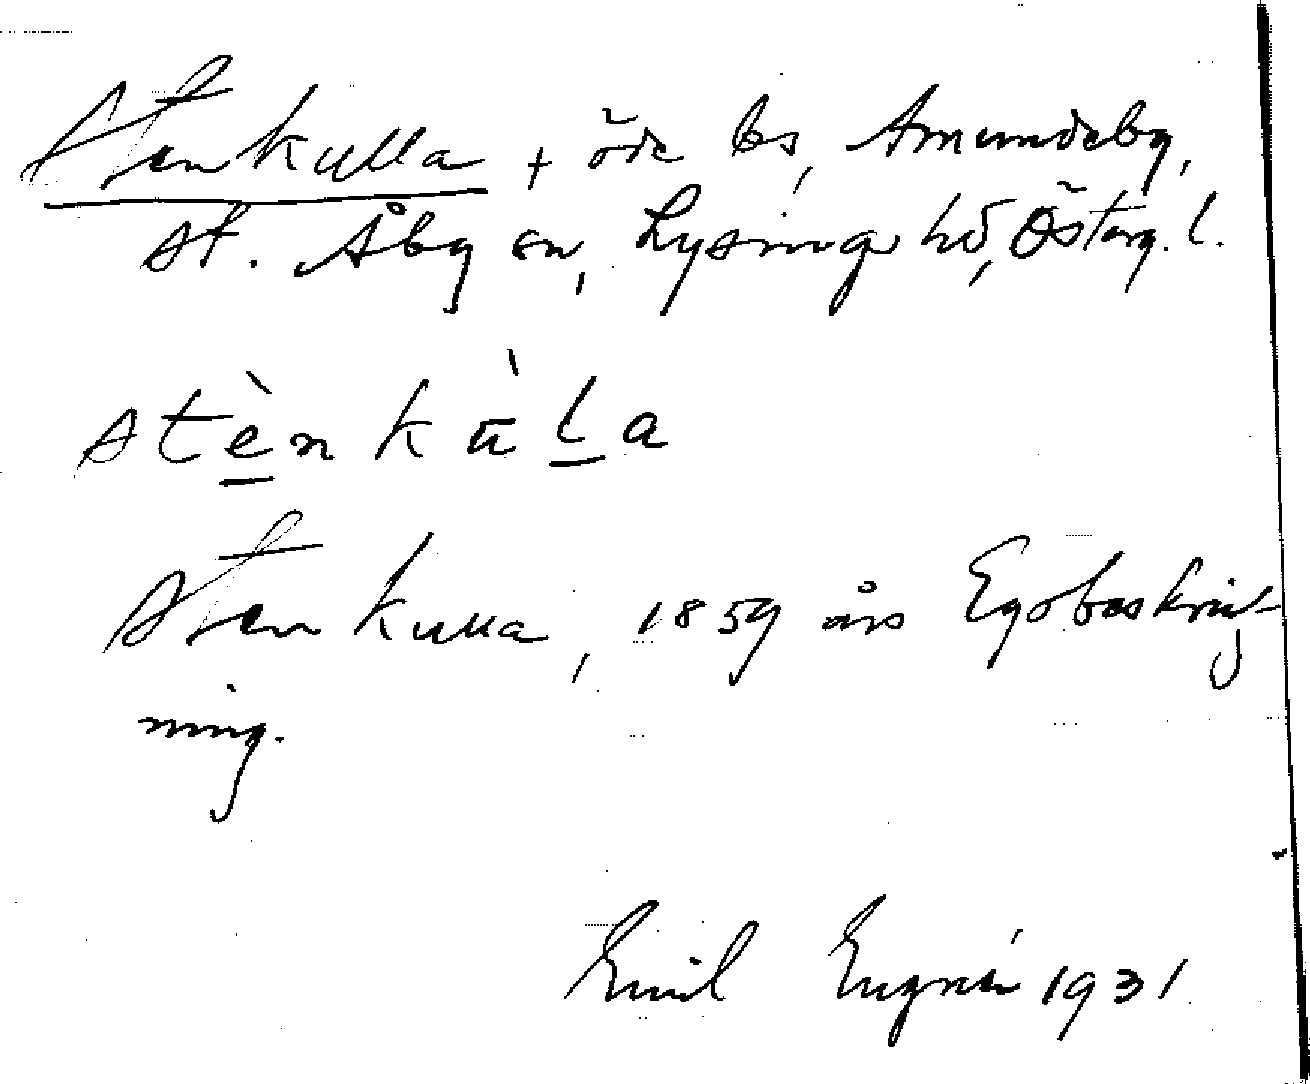 Stenkulla + öde bs, Amundeby,
st. Åby sn, Lysings hd, Österg. l.
stènkùla
Stenkulla, 1859 års Egobeskriv-
ning.
Emil Engnér 1931